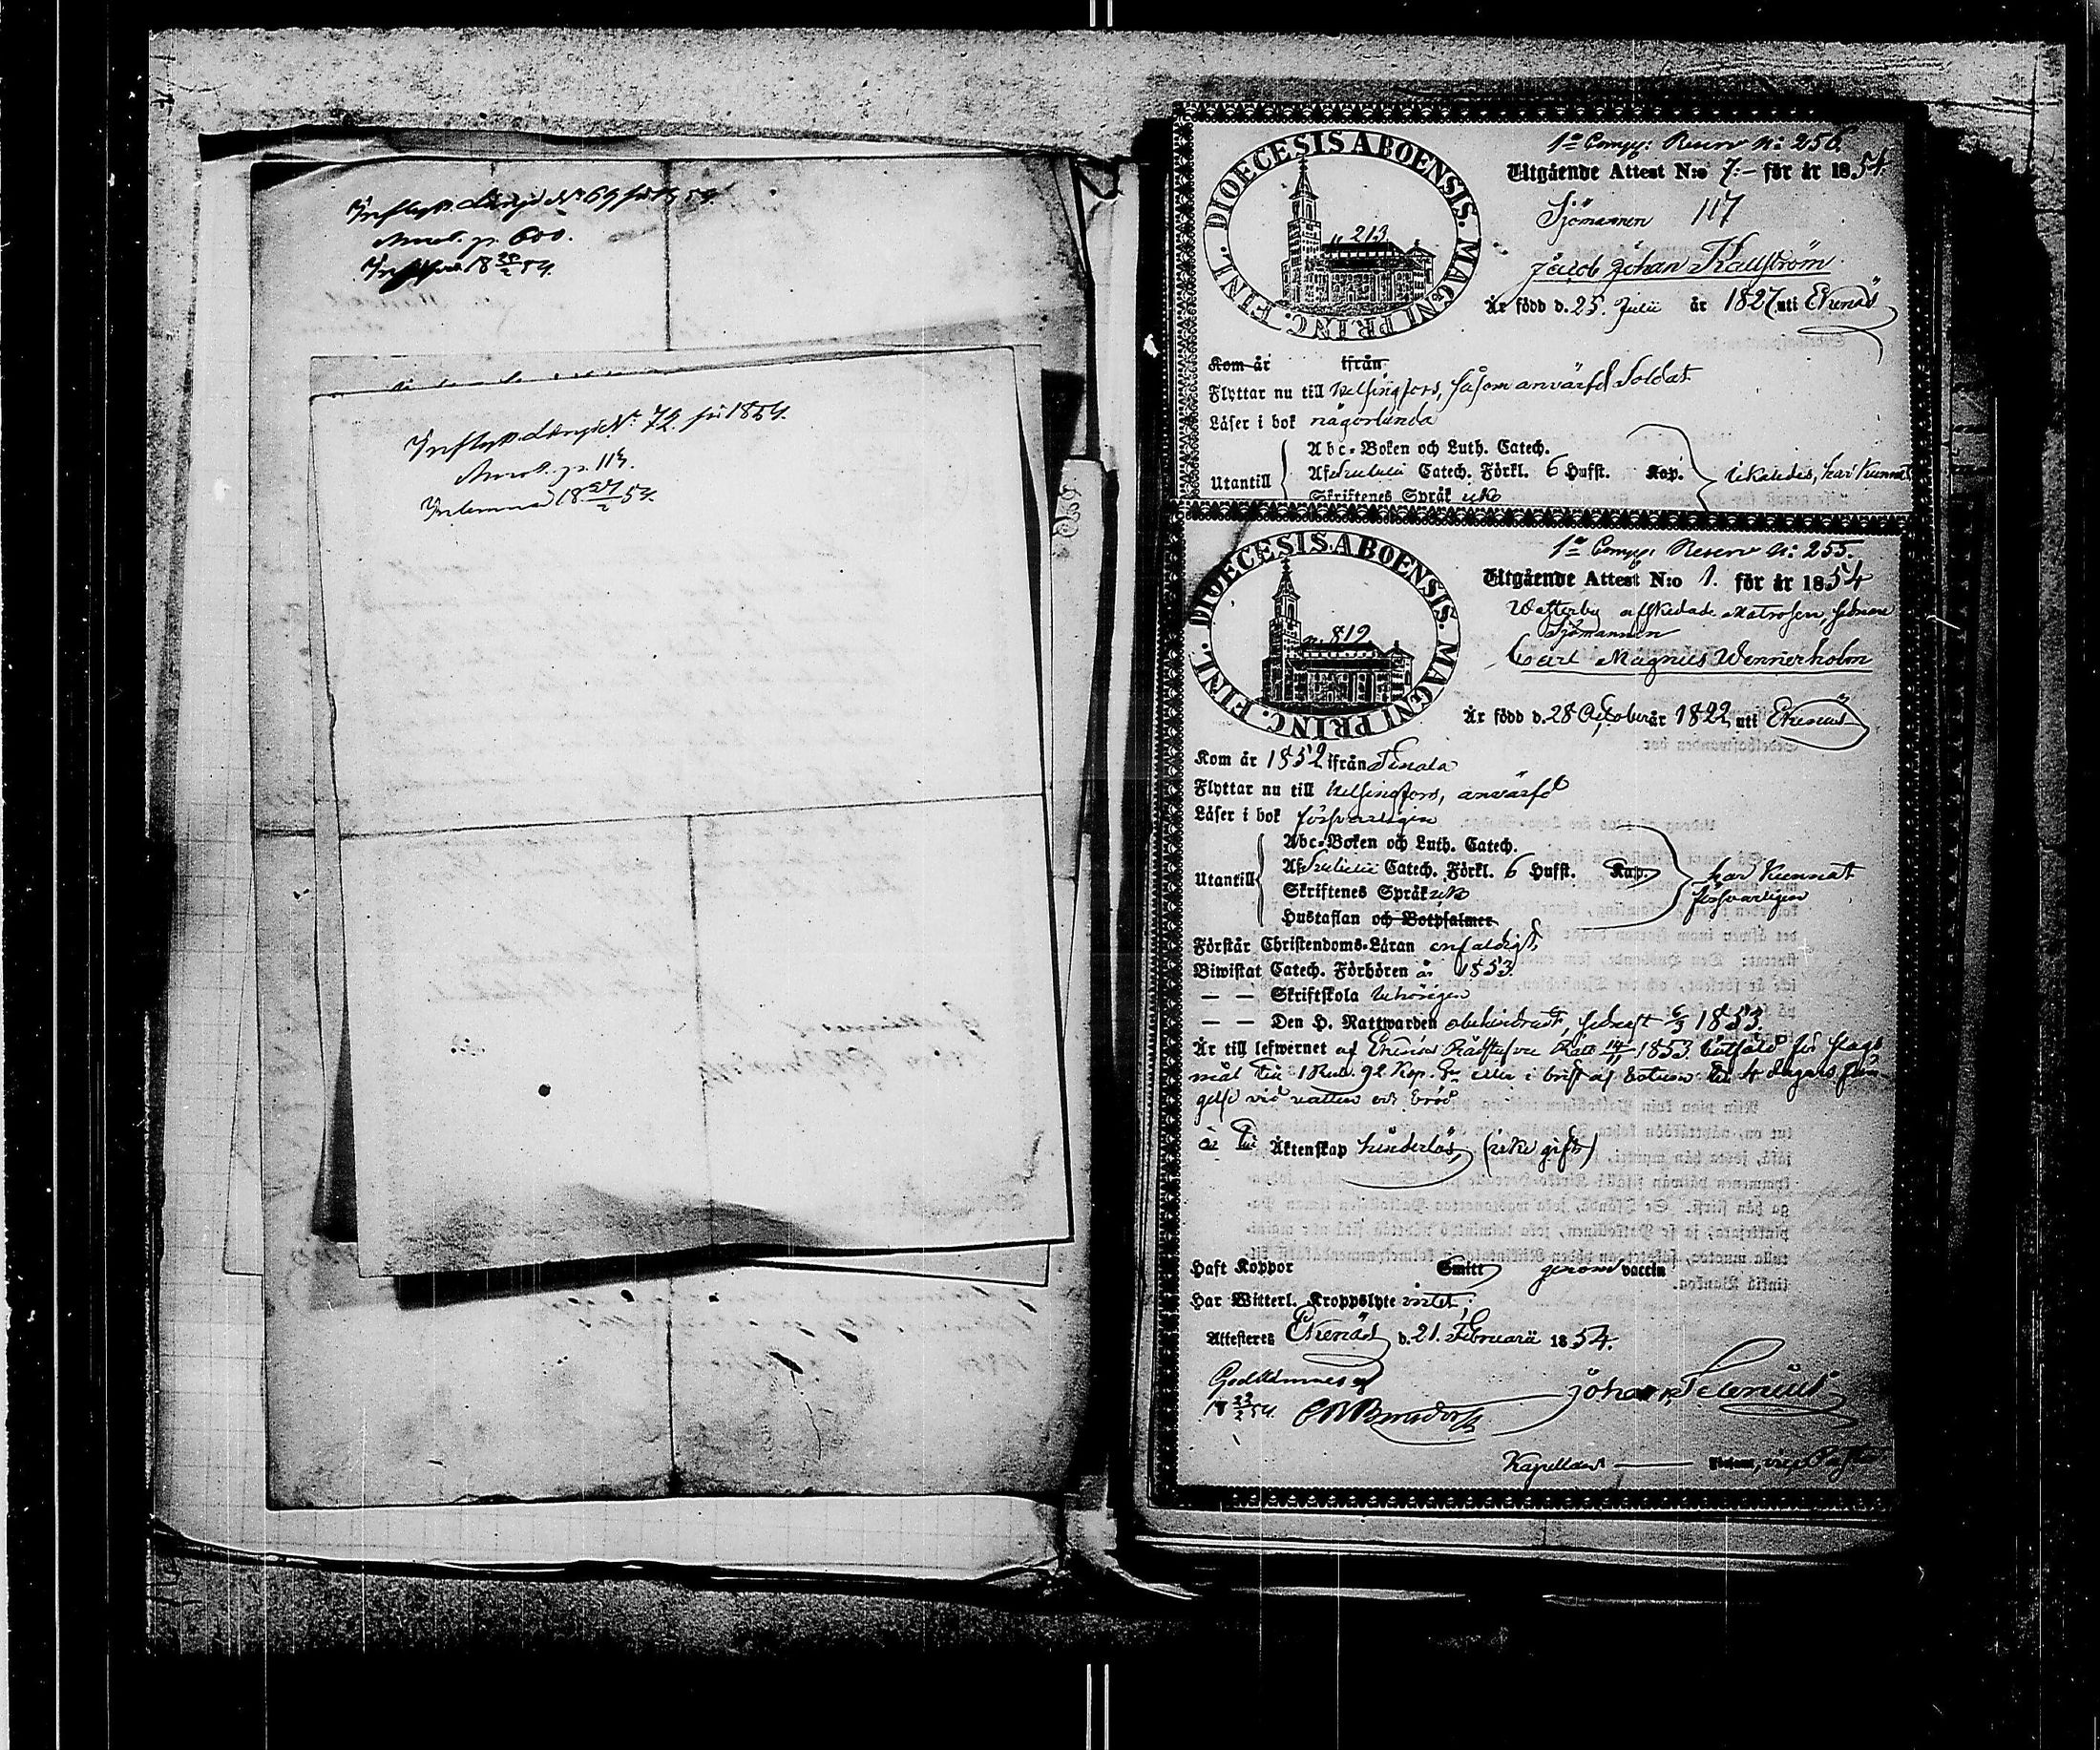 Inflytt. Längd N:o 69 för 1854.
p. 600.
Inflyttn. Längd N:o 72. för 1854.
p. 113.
Inlemnad 18 27/2 54.
1:a Comp: Reserv N: 256.
Utgående Attest N:o 7:– för år 1854.
Sjömannen 117
DIOECESIS ABOENSIS. MAGNI PRINC. FINL.
n. 213
Jacob Johan Källström
Är född d. 25. Julii år 1827 uti Ekenäs
Kom år ifrån
Flyttar nu till Helsingfors, såsom anvärfd Soldat
Läser i bok någorlunda
Abc-Boken och Luth. Catech.
Utantill Af Svebilii Catech. Förkl. 6 Hufst. Kap. likaledes, har kunnat
Skriftenes Språk icke
1:a Comp: Reserv N: 255.
Utgående Attest N:o 1. för år 1854
afskedade Matrosen, sednare
Sjömannen
DIOECESIS ABOENSIS. MAGNI PRINC. FINL.
n. 819
Carl Magnus Wennerholm
Är född d. 28 October år 1822 uti Ekenäs
Kom år 1852 ifrån Tenala
Flyttar nu till Helsingfors, anvärfd
Läser i bok försvarligen
Abc-Boken och Luth. Catech.
Utantill Af Svebilii Catech. Förkl. 6 Hufst. Kap. har kunnat
Skriftenes Språk icke försvarligen
Hustaflan och Botpsalmer
Förstår Christendoms-Läran enfaldigt,
Biwistat Catech. Förhören år 1853.
— — Skriftskola behörigen
— — Den H. Nattwarden obehindradt, sednast 6/3 1853.
Är till lefwernet af Ekenäs Rådstufvu Rätt 14/11 1853 bötfäld för slags
mål till 1 Rub. 92 Kop. S:r eller i brist af botum till 4 dagars fän-
gelse vid vatten och bröd
är till Äktenskap hinderlös, (icke gift)
Haft Koppor Smitt genom vaccin
Har Witterl. Kroppslyte intet;
Attesteres Ekenäs d. 21. Februarii 1854.
Godkännes
18 22/2 54. Johan
Kapellan